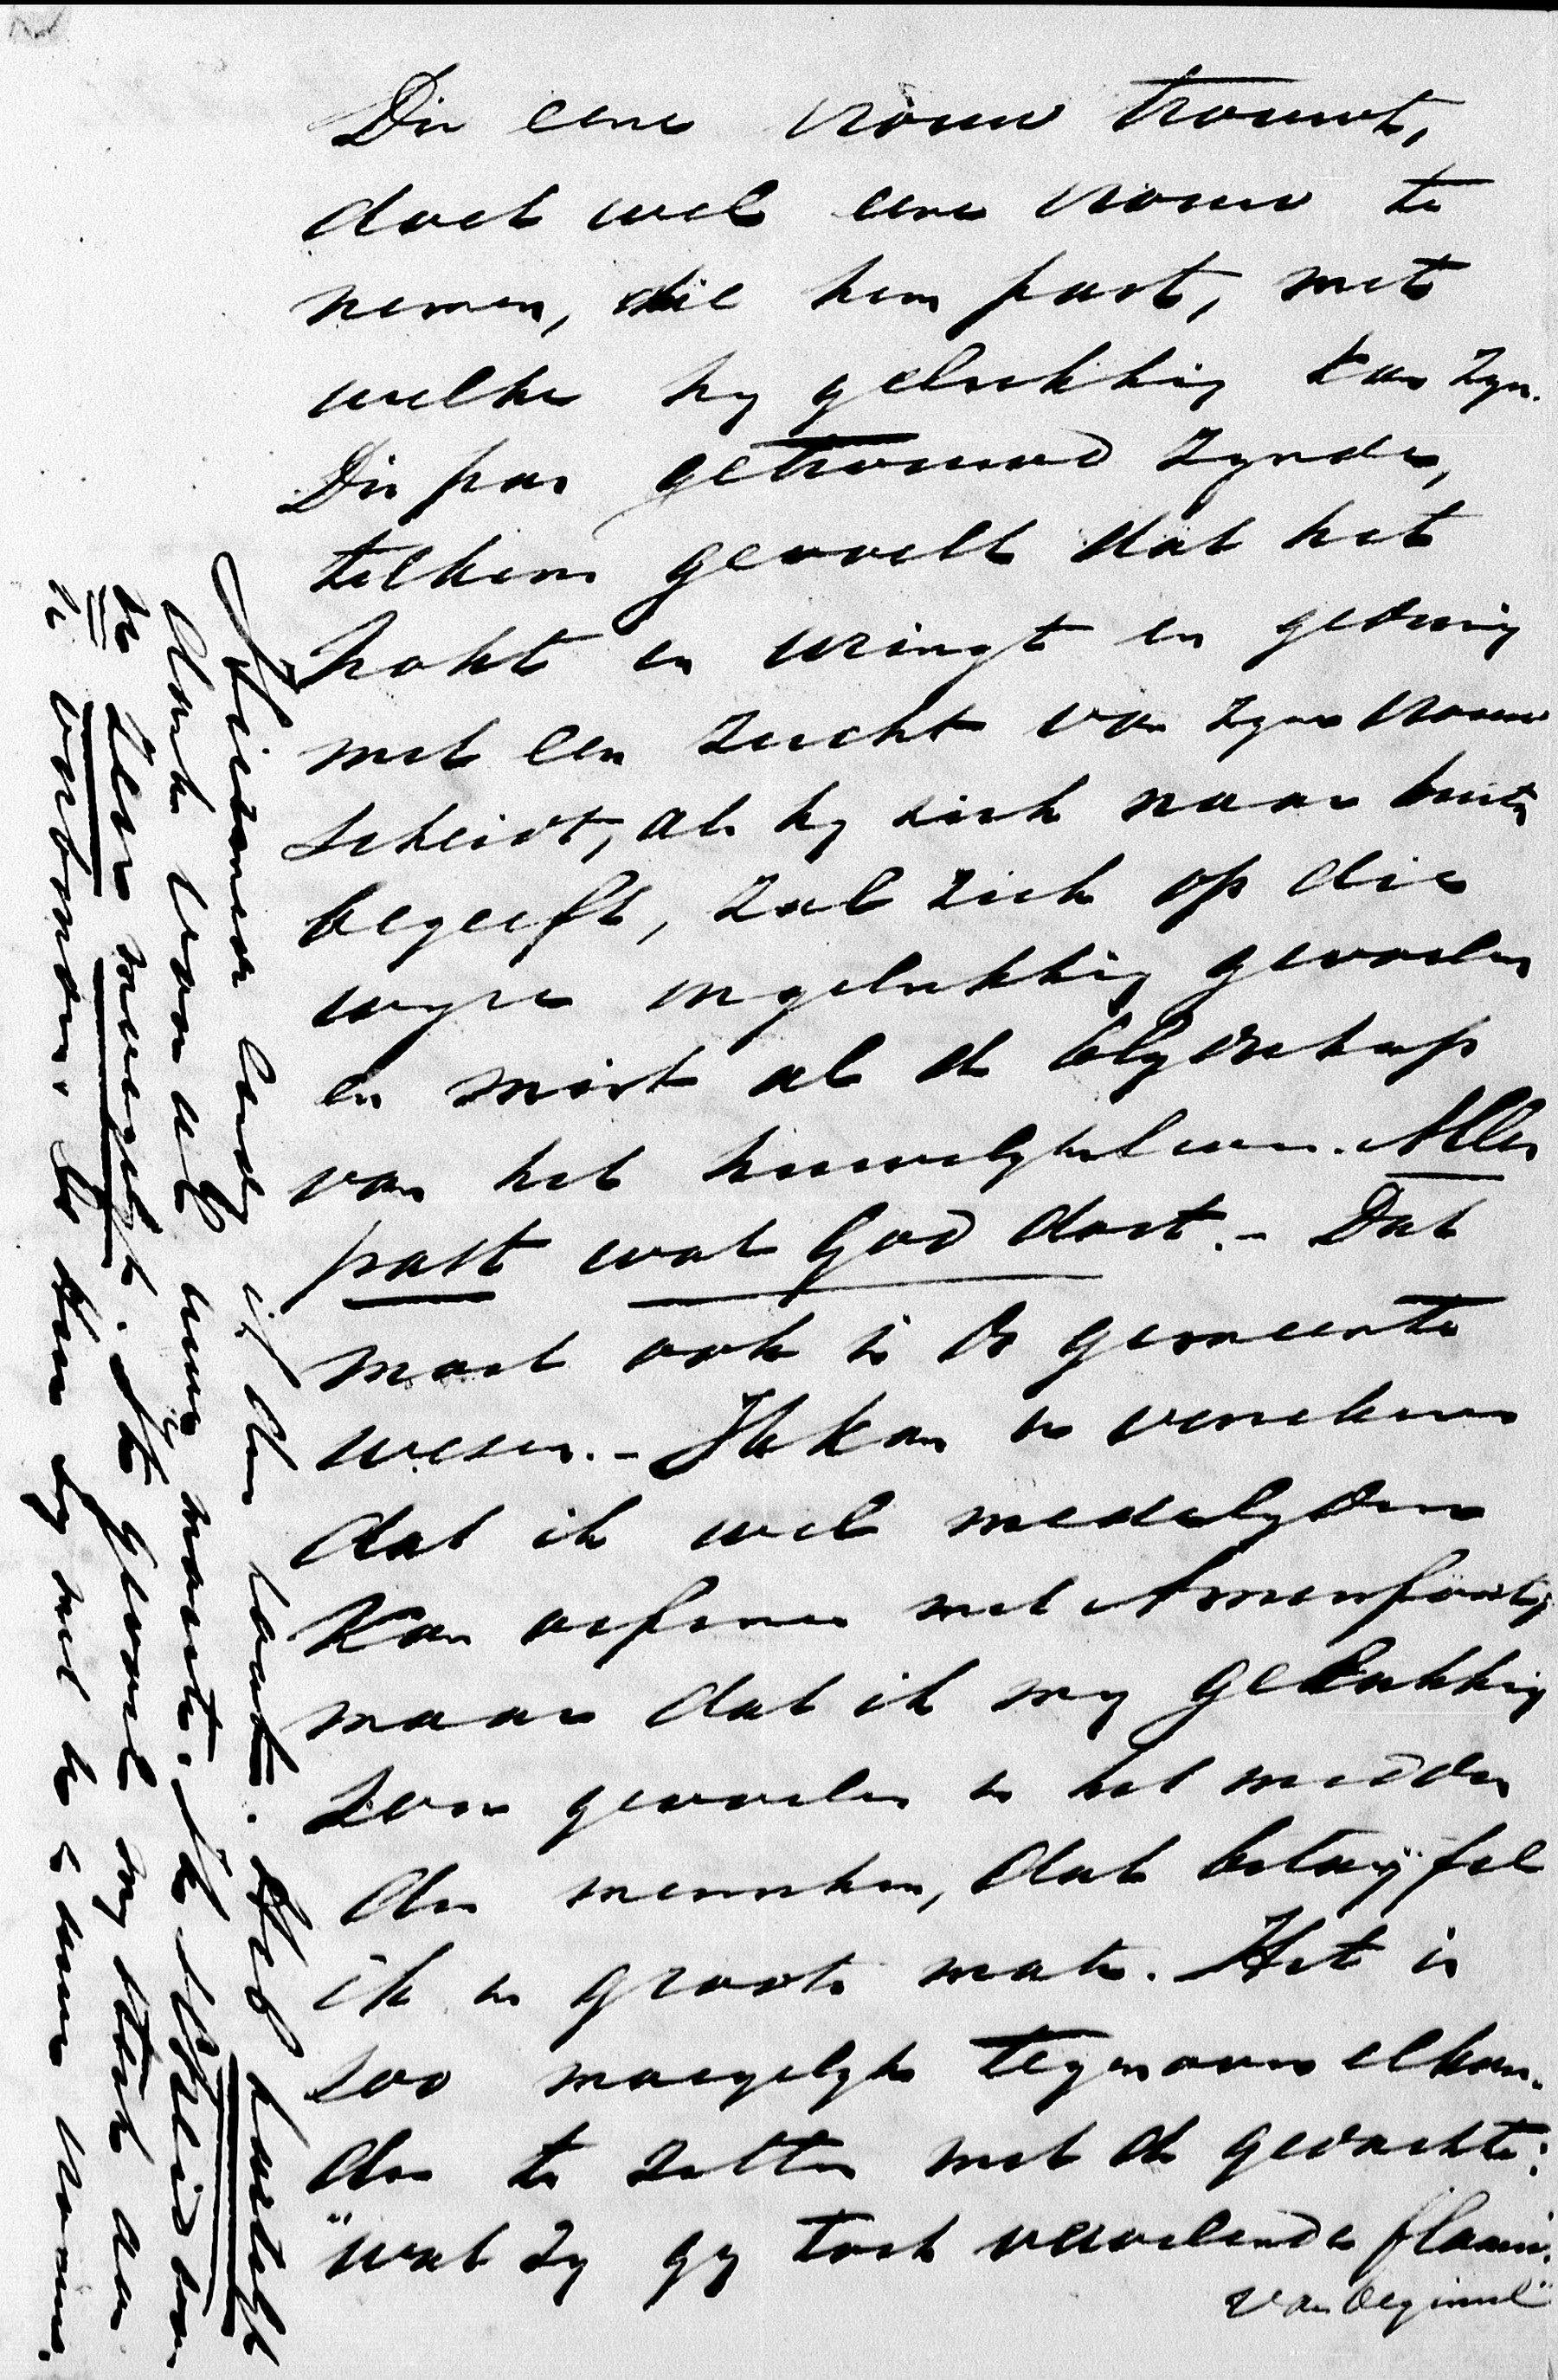 Die eene vrouw trouwt,
doet wel eene vrouw te
nemen, die hem past, met
welke hy gelukkig kan zyn.
Die pas getrouwd zynde,
telkens gevoelt dat het
hokt en wringt en gedurig
met een zucht van zyne vrouw
scheidt, als hy zich naar buiten
begeeft, zal zich op die
wyze ongelukkig gevoelen
en mist al de blydschap
van het huwelyksleven. Alles
past wat God doet. - Dat
moet ook in de gemeente
wezen. - Ik kan u verzekeren
dat ik wel medelyden
kan oefenen met
maar dat ik my gelukkig
zou gevoelen in het midden
der menschen, dat betwyfel
ik in groote mate. Het is
zoo moeyelyk tegenover elkan-
der te zitten met de gedachte:
"wat zy gy toch vervelende
van beginsel"
is den laatste. Heb hartelyk
dank voor al uwe moeite. Ik
zeer moeyelyk. Ik gevoel my sterk aan
u verbonden.